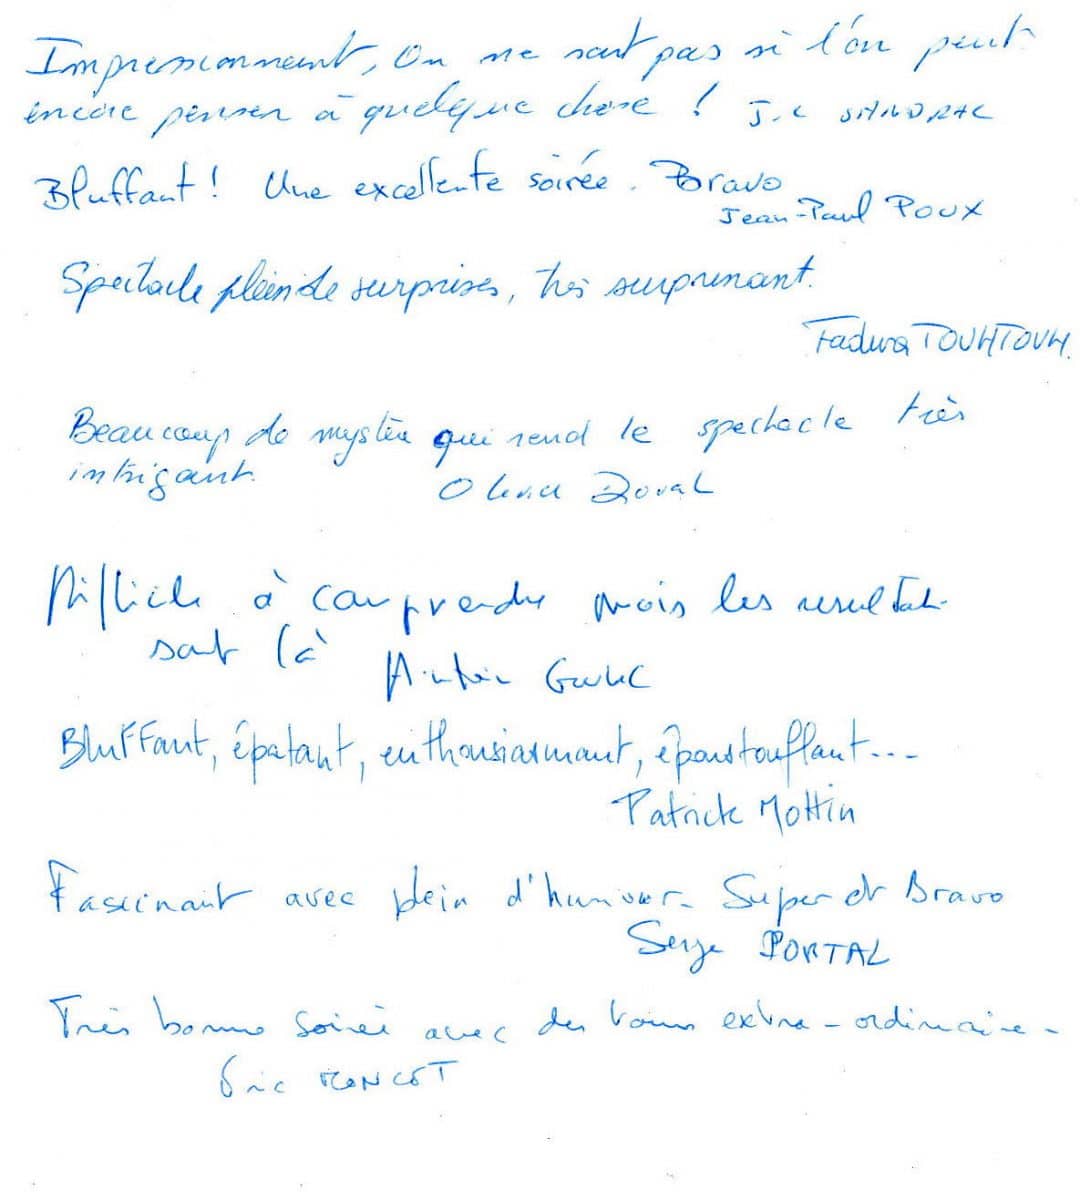 Impressionnant, On ne sait pas si l'on peut
encore penser à quelque chose ! J.C
Bluffant ! Une excellente soirée. Bravo
Jean-Paul ROUX
Spectacle plein de surprises, très surprenant.
TOUHTOUH.
Beaucoup de mystère qui rend le spectacle très
intrigant.
Doval
Difficile à comprendre mais les resultats
sont là
Bluffant, épatant, enthousiasmant, époustouflant...
Patrick Mottin
Fascinant avec plein d'humour. Super et Bravo
Serge PORTAL
Très bonne soirée avec des tours extra-ordinaire.
Eric